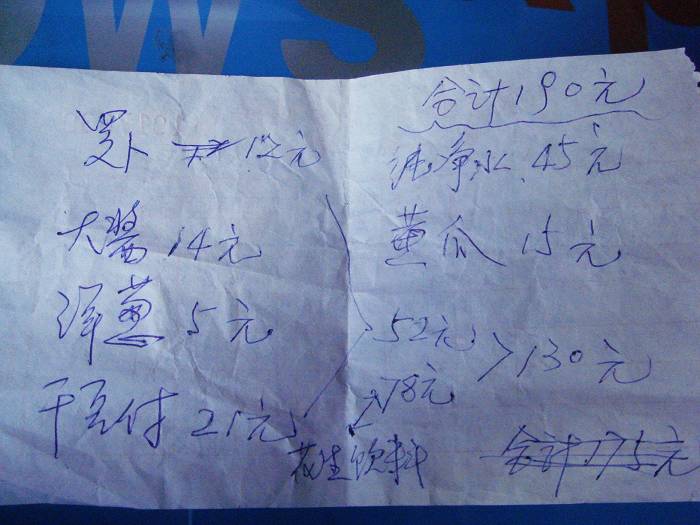 OWS
罗卜 12元
大酱 14元
洋葱 5元
干豆付 21元
合计190元
纯净水 45元
黄瓜 15元
52元
78元
>130元
花生饮料
合计175元